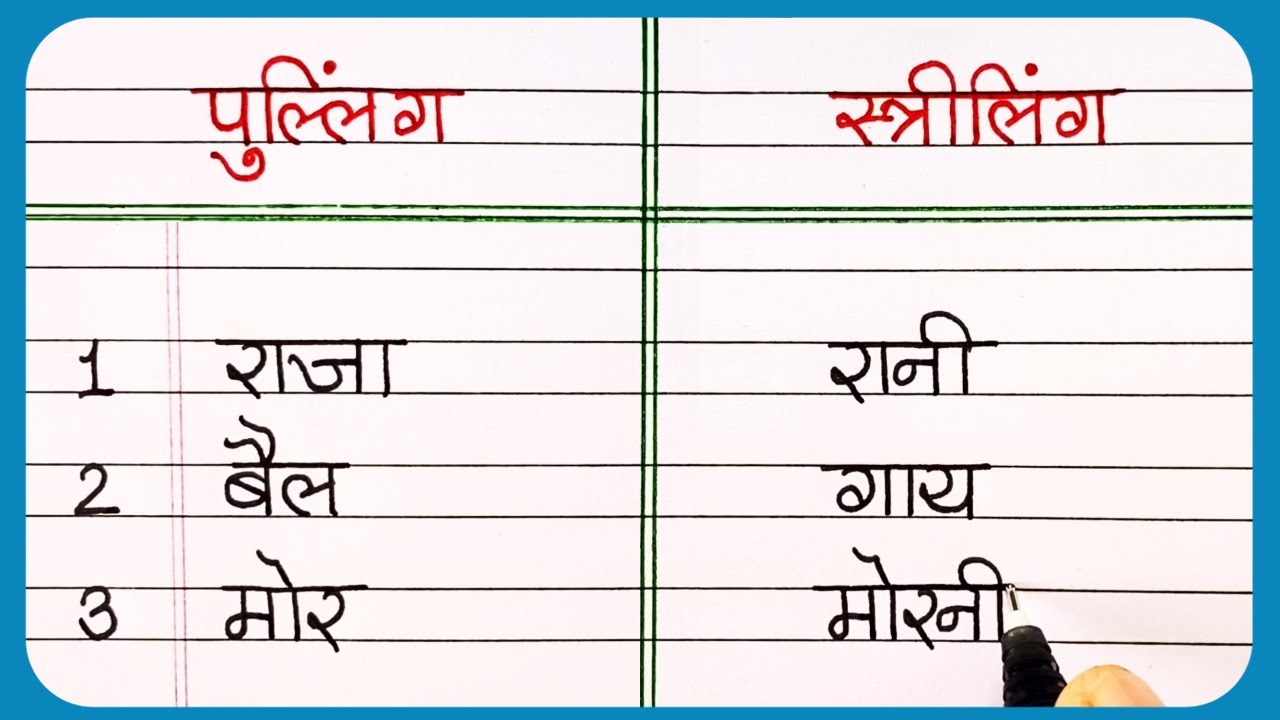 पुल्लिंग स्त्रीलिंग
1 राजा रानी
2 बैल गाय
3 मोर मोरनी